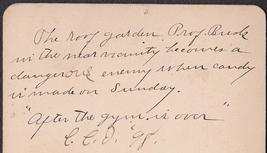 The roof garden. Prof. Rusk
in the near vicinity becomes a
dangerous enemy when candy
is made on Sunday.
"After the gym is over"
C. C. D. '98.